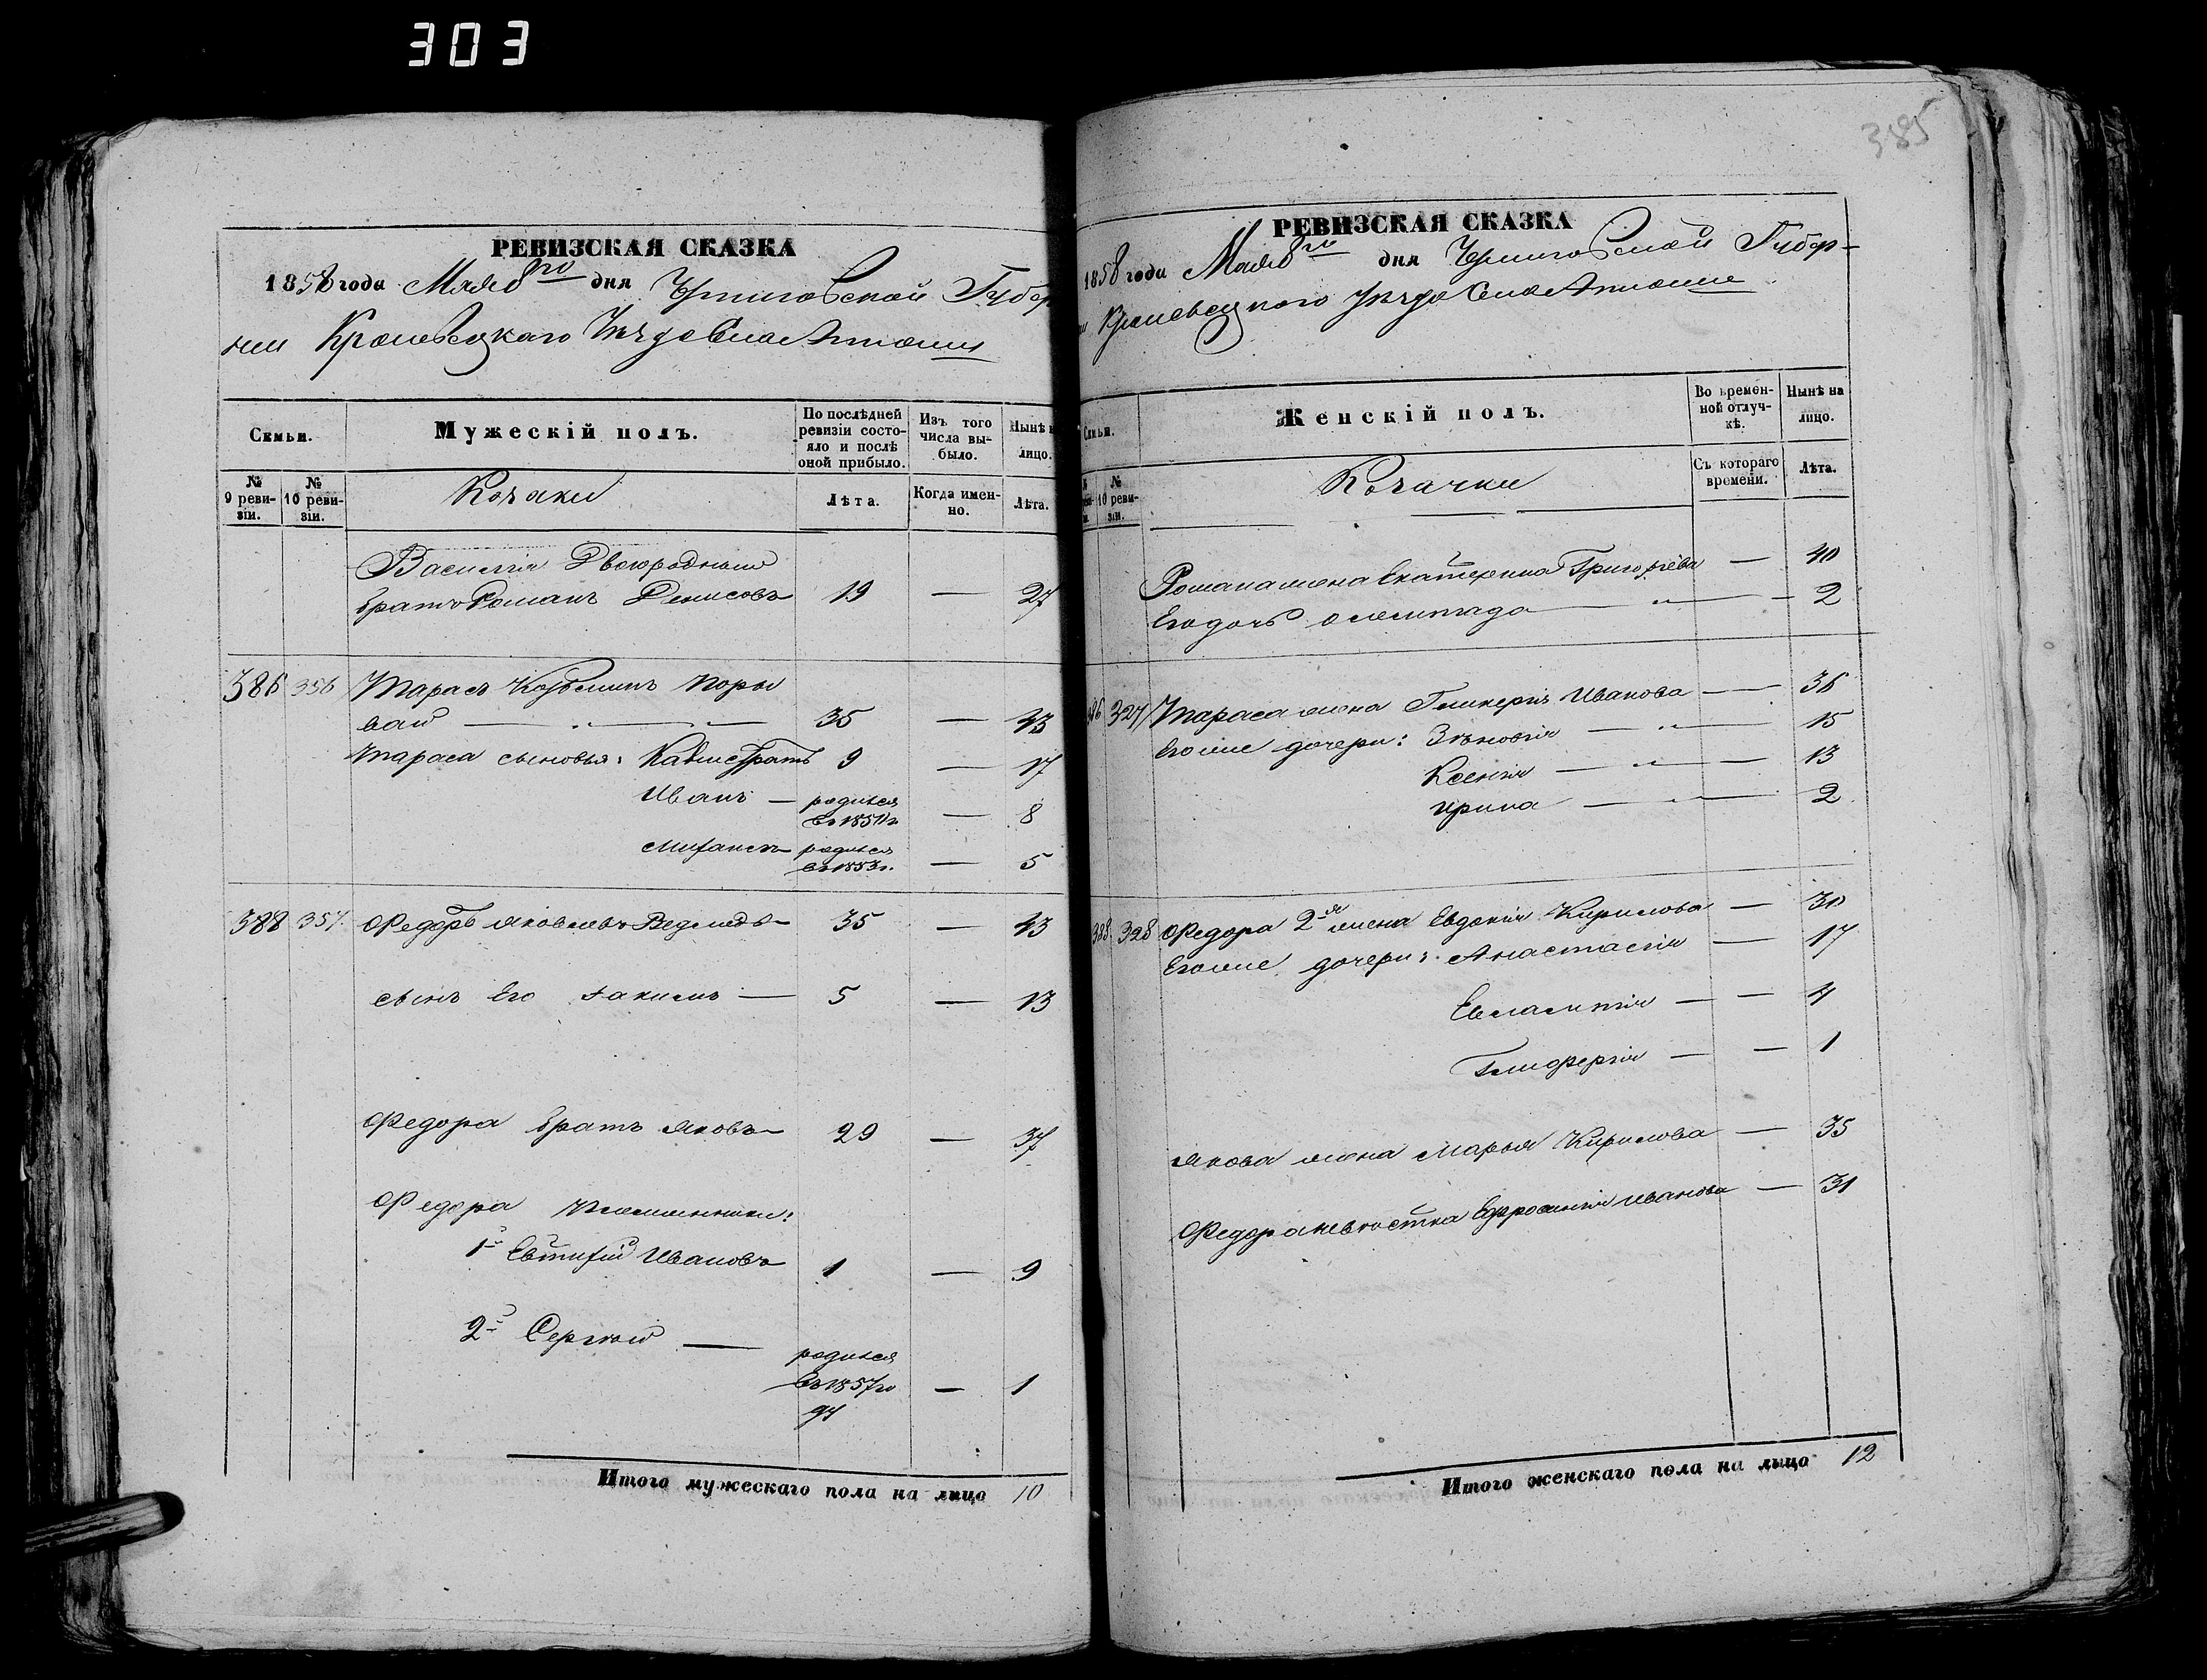 303
385
РЕВИЗСКАЯ СКАЗКА
1858 года Мая 8го дня Черниговской Губер
нии Кролевецкаго Уѣзда Села
Семьи.
Мужескій полъ.
По послѣдней ревизіи состо-
яло и послѣ оной прибыло.
Изъ того числа вы-
было.
Нынѣ
лицо.
№ 9 реви-
зіи.
№ 10 реви-
зіи.
Козаки
Лѣта.
Когда имен-
но.
Лѣта.
Василія Двоюродный
братъ Романъ Денисовъ 19 — 27
386 356 Тарасъ Козьминъ Поры
вай — „ — 35 — 43
Тараса сыновья: Калистратъ 9 — 17
Иванъ — родился
въ 1850 г. — 8
Михаилъ родился
въ 1853 г. — 5
388 357 Федоръ Яковлевъ Ведмедь 35 — 43
сынъ Его Іакимъ — 5 — 13
Федора братъ Яковъ 29 — 37
Федора Племянники:
1й Евтихій Ивановъ 1 — 9
2й Сергѣй —
родился
въ 1857 го — 1
ду
Итого мужескаго пола на лицо 10
РЕВИЗСКАЯ СКАЗКА
1858 года Мая 8го дня Черниговской Губер-
и Кролевецкаго Уѣзда Села
Семьи.
Женскій полъ.
Во времен-
ной отлуч-
кѣ.
Нынѣ на
лицо.
№ 10 реви-
зіи.
Козачки
Съ котораго
времени.
Лѣта.
Романа жена Екатерина Григорьева — 40
Его дочь — „ — 2
86 327 Тараса жена Гликерія Иванова — 36
Егоже дочери: Зѣновія — „ — 15
Ксенія — „ — 13
Ирина — „ — 2
388 328 Федора 2я жена Евдокія Кирилова — 30
Егоже дочери: Анастасія — 17
Евлампія — — 4
Глифергія — — 1
Якова жена Марья Кирилова — 35
Федора невѣстка Ефросинія Иванова — 31
Итого женскаго пола на лицо 12